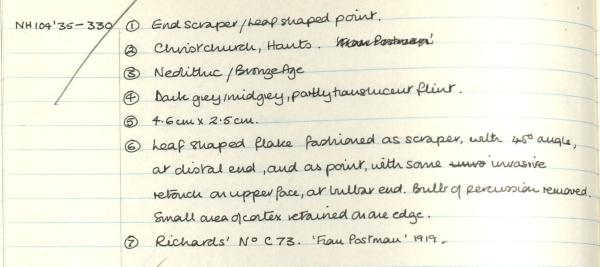 NH104'35-330 ① End scraper/Leaf shaped point.
② Christchurch, Hants. 'From Postman'
③ Neolithic/Bronze Age
④ Dark grey/midgrey, partly translucent flint.
⑤ 4.6cm x 2.5cm.
⑥ Leaf shaped flake fashioned as scraper, with 45° angle,
at distal end, and as point, with some invasive
retouch on upper face, at bulbar end. Bulb of percussion removed.
Small area of cortex retained on one edge.
⑦ Richards' No C73. 'From Postman' 1919.